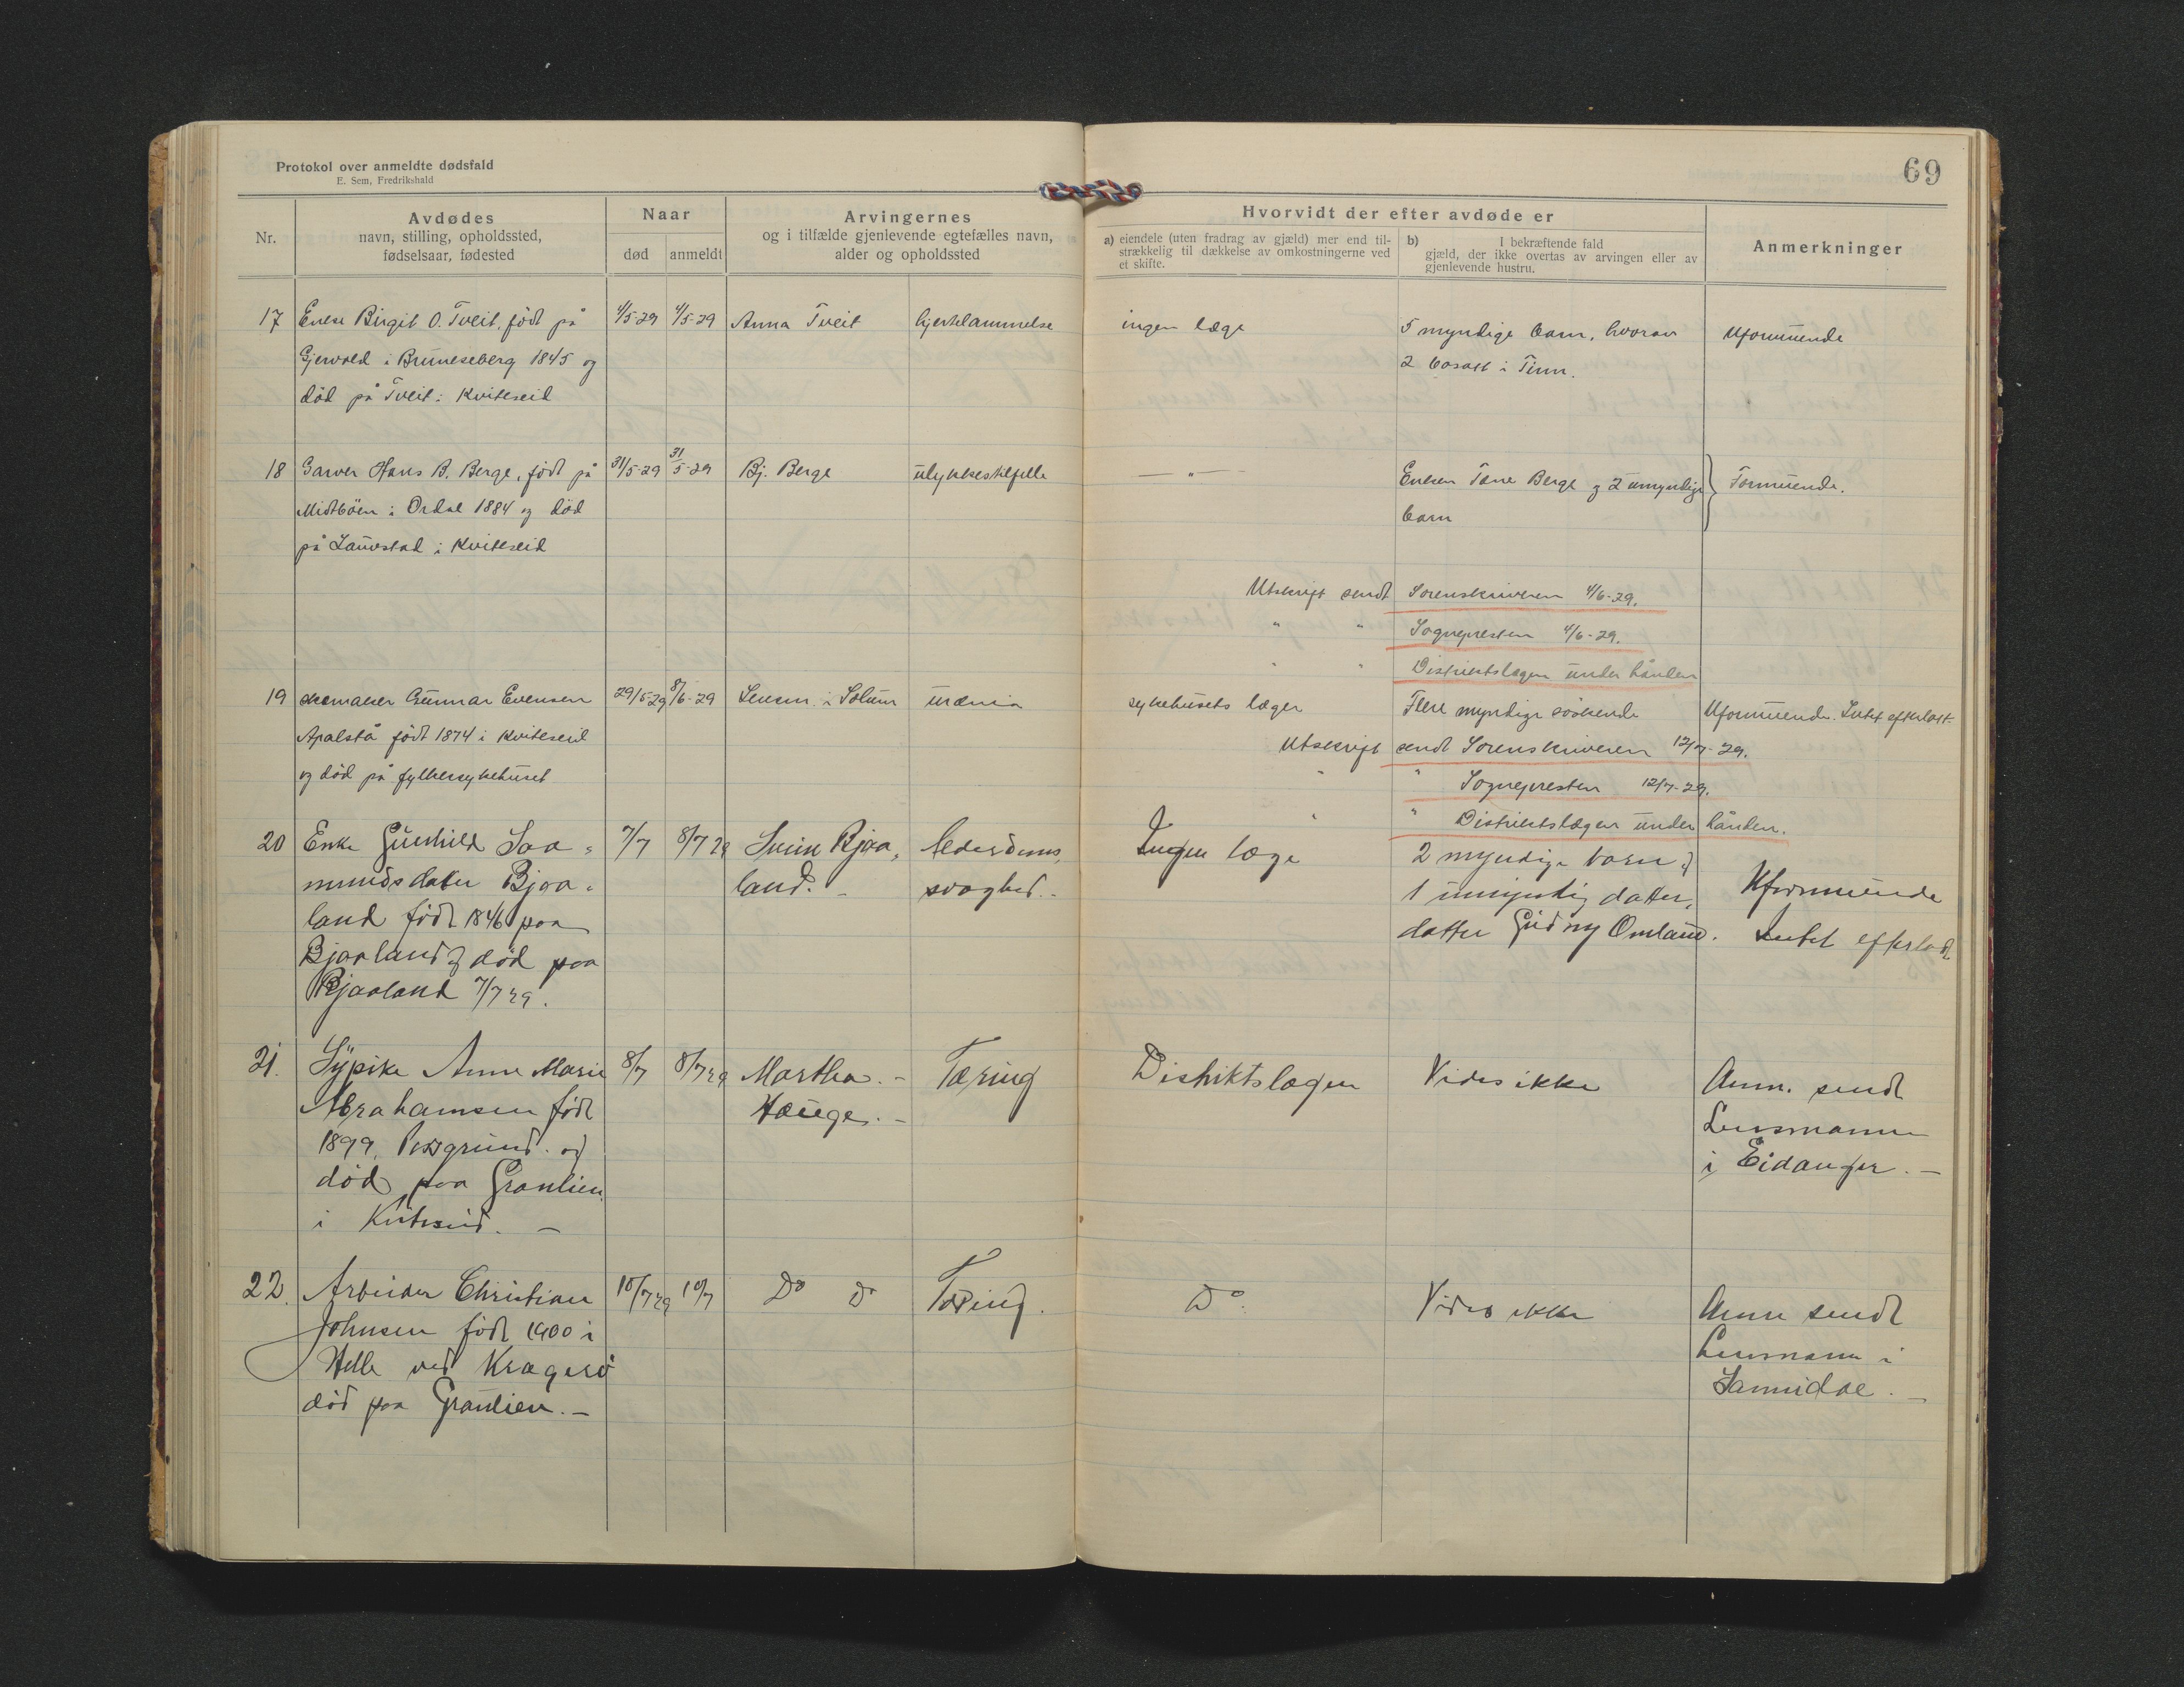 Protokol over anmeldte dødsfald
E. Sem, Fredrikshald
69
Nr.
Avdødes
navn, stilling, opholdssted,
fødselsaar, fødested
Naar
død
anmeldt
Arvingernes
og i tilfælde gjenlevende egtefælles navn,
alder og opholdssted
Hvorvidt der efter avdøde er
a) eiendele (uten fradrag av gjæld) mer end til-
strækkelig til dækkelse av omkostningerne ved
et skifte.
b) I bekræftende fald
gjæld, der ikke overtas av arvingen eller av
gjenlevende hustru.
Anmerkninger
17 Enke Birgit O. Tveit, födt på 4/5-29 4/5-29 Anna Tveit hjertelammelse ingen læge 5 myndige barn, hvorav Uformuende
i Bruneseberg 1845 og 2 bosatt i Tinn.
död på Tveit i Kviteseid
18 Garver Hans B. Berge, födt på 31/5-29 31/5-29 Bj. Berge ulykkestilfelle — " — Enken Tone Berge og 2 umyndige Formuende.
Midtböen i Ordal 1884 og död barn
på Lauvstad i Kviteseid
Utskrift sendt Sorenskriveren 4/6-29.
" " Sognepresten 4/6-29.
" " Distriktslægen under hånden
19 Gunnar Evensen 29/5-29 8/6-29 Lensm. i Solum uræmia sykehusets læger Flere myndige söskende Uformuende. Intet efterlatt.
Apalstå födt 1874 i Kviteseid
Utskrift sendt Sorenskriveren 12/7-29.
og död på fylkessykehuset
" " Sognepresten 12/7-29.
" " Distriktslægen under hånden.
20 Enke Gunhild Saa- 7/7 8/7 29 Svein Bjaa- alderdoms- Ingen læge 2 myndige barn og Uformuende
mundsdatter Bjaa- land. - svaghed. - 1 umyndig datter- Intet efterladt
land födt 1846 paa datter Gudny Omland.
Bjaaland og död paa
Bjaaland 7/7 29.
21. Sypike Anne Marie 8/7 8/7 29 Martha - Tæring Distriktslægen Vides ikke Anm. sendt
Abrahamsen födt Hauge. - Lensmannen
1899, Porsgrund og i Eidanger. -
död paa Granlien
i Kviteseid. -
22. Arbeider Christian 10/7 29 10/7 Do Do Tæring. Do. Vides ikke Anm sendt
Johnsen födt 1900 i Lensmann i
Helle ved Kragerö Sannidal. -
död paa Granlien. -